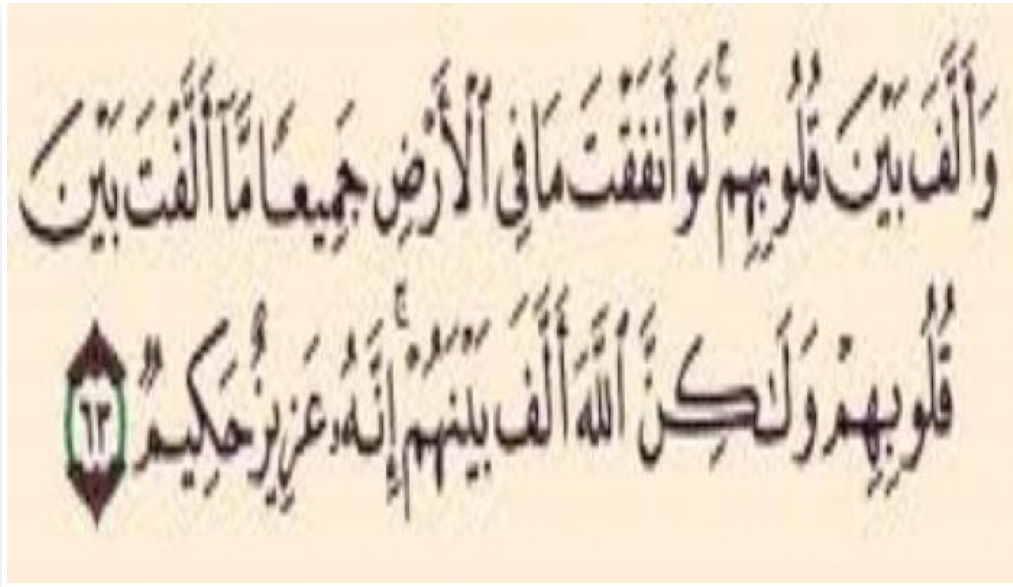 وَأَلَّفَ بَيْنَ قُلُوبِهِمْ ۚ لَوْ أَنفَقْتَ مَا فِي ٱلْأَرْضِ جَمِيعًا مَّآ أَلَّفْتَ بَيْنَ
قُلُوبِهِمْ وَلَـٰكِنَّ ٱللَّهَ أَلَّفَ بَيْنَهُمْ ۚ إِنَّهُۥ عَزِيزٌ حَكِيمٌ ٦٣